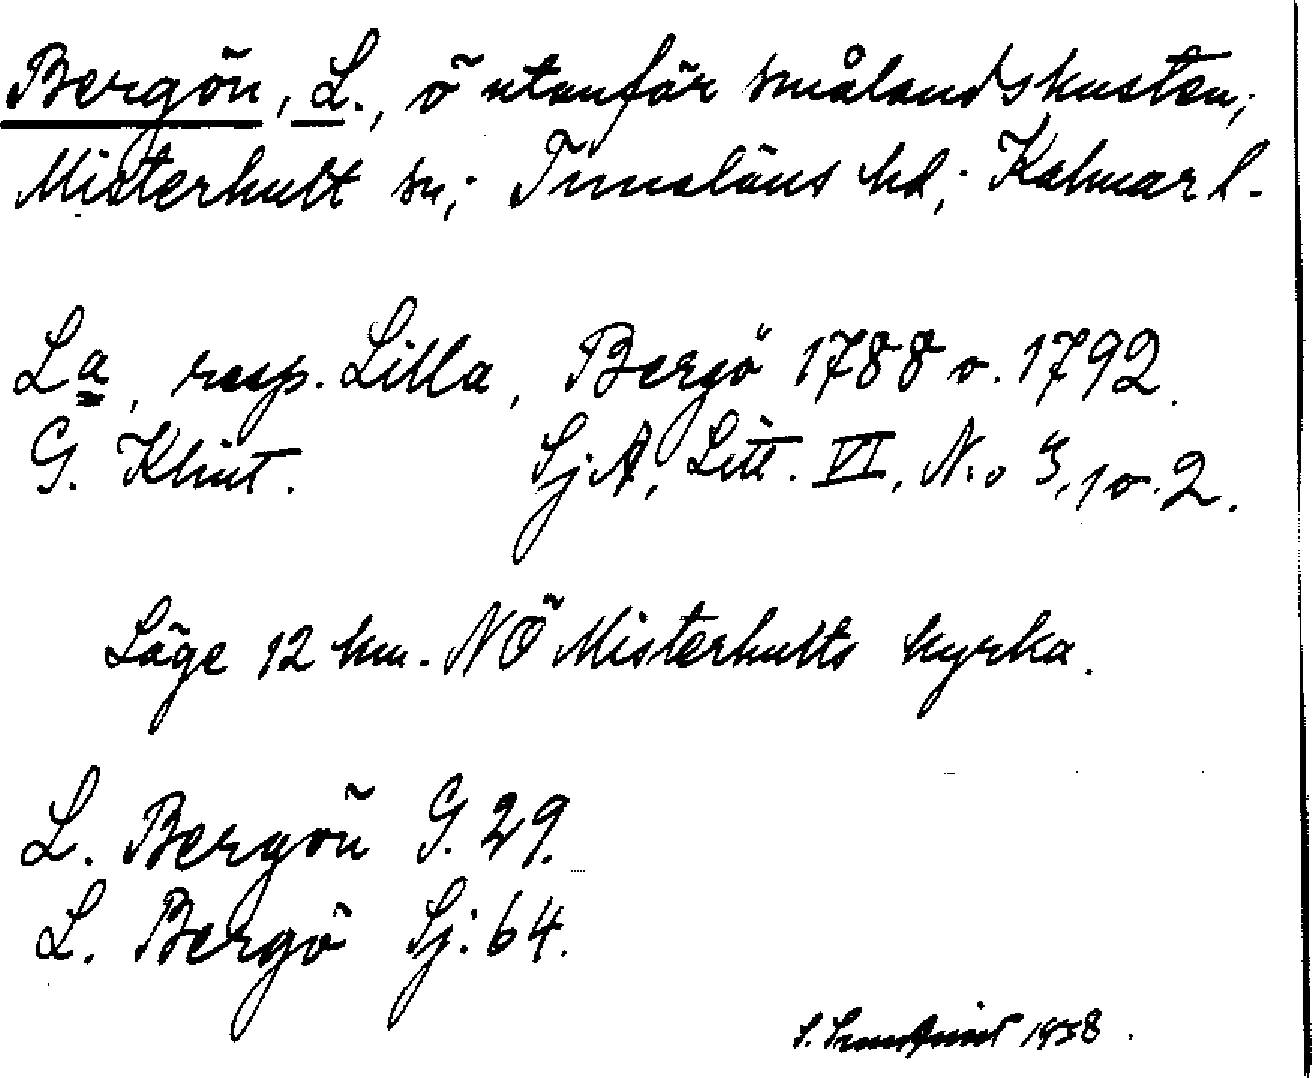 Bergön, L., ö utanför Smålandskusten;
Misterhult sn; Tunaläns hd; Kalmar l.
La, resp. Lilla, Bergö 1788 o. 1792.
G. Klint. SjA, Litt. VI, N:o 3, 1 o. 2.
Läge 12 km. NÖ Misterhults kyrka.
L. Bergön G. 29.
L. Bergö Sj. 64.
S. 1938.